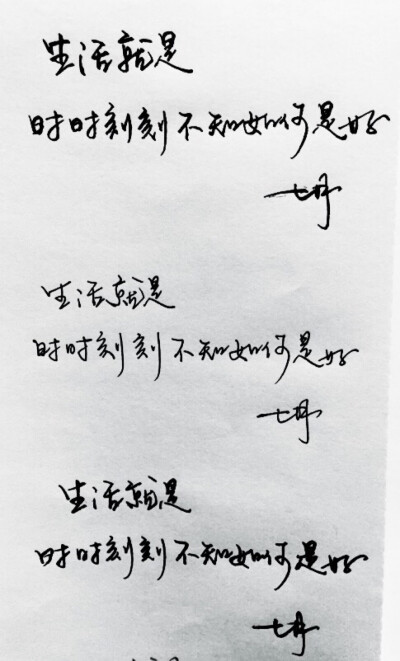 生活就是
时时刻刻不知如何是好
生活就是
时时刻刻不知如何是好
生活就是
时时刻刻不知如何是好